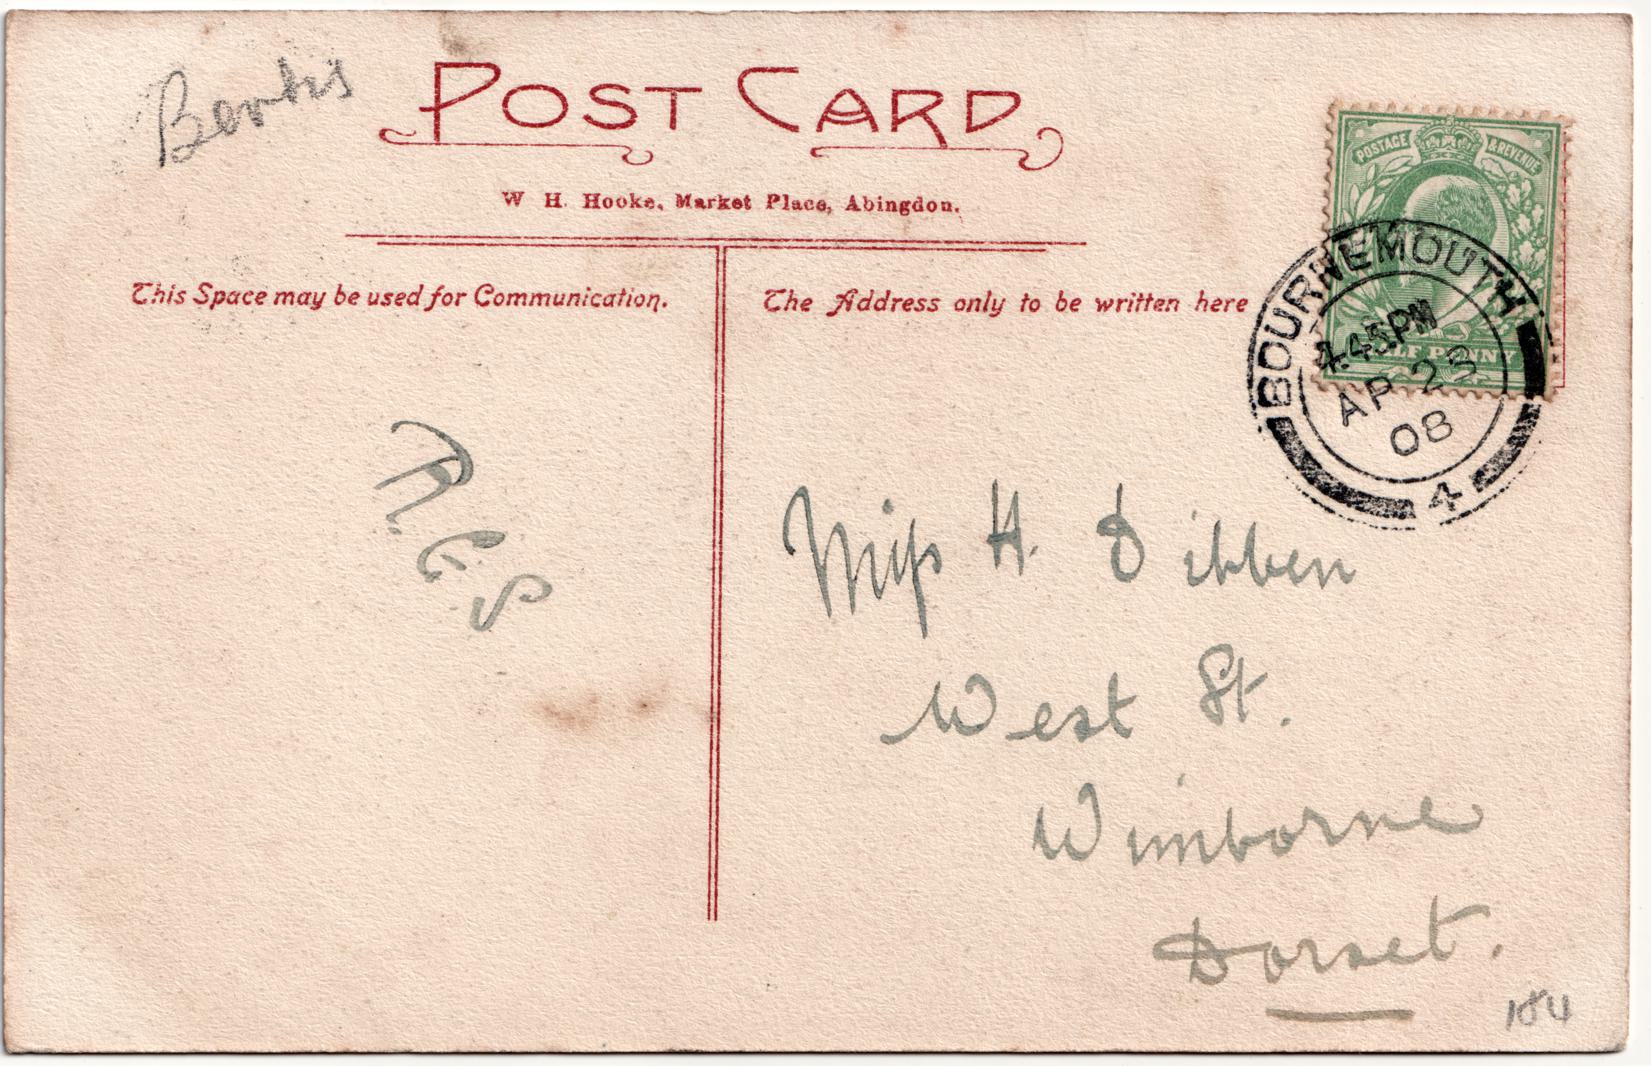 POST CARD
W H. Hooke, Market Place, Abingdon.
This Space may be used for Communication.
The Address only to be written here
POSTAGE & REVENUE
HALF PENNY
BOURNEMOUTH
4.45PM
AP 25
08
4
Miss H. Dibben
West St.
Wimborne
Dorset.
184